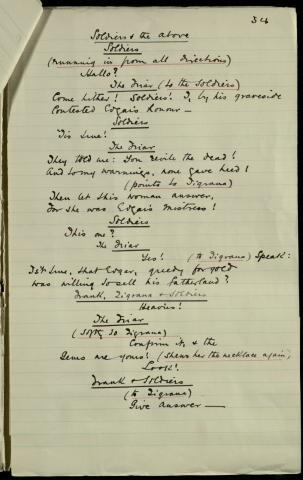 34
Soldiers & the above
Soldiers
(running in from all directions)
Hallo?
The Friar (to the Soldiers)
Come hither! Soldiers! I, by his graveside
Contested Edgar's honour —
Soldiers
'Tis true!
The Friar
They told me: You revile the dead!
And to my warnings, none gave heed!
(points to Tigrana)
Then let this woman answer,
For she was Edgar's mistress!
Soldiers
This one?
The Friar
Yes! (to Tigrana) Speak:
Is't true, that Edgar, greedy for gold
was willing to sell his fatherland?
Frank, Tigrana & Soldiers
Heavens!
The Friar
(softly to Tigrana)
Confirm it, & the
Gems are yours! (shews her the necklace again)
Look!
Frank & Soldiers
(to Tigrana)
Give answer —